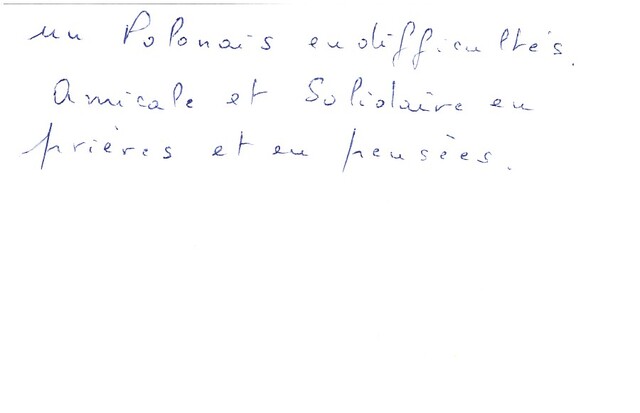 un Polonais en difficultés.
Amicale et Solidaire en
prières et en pensées.